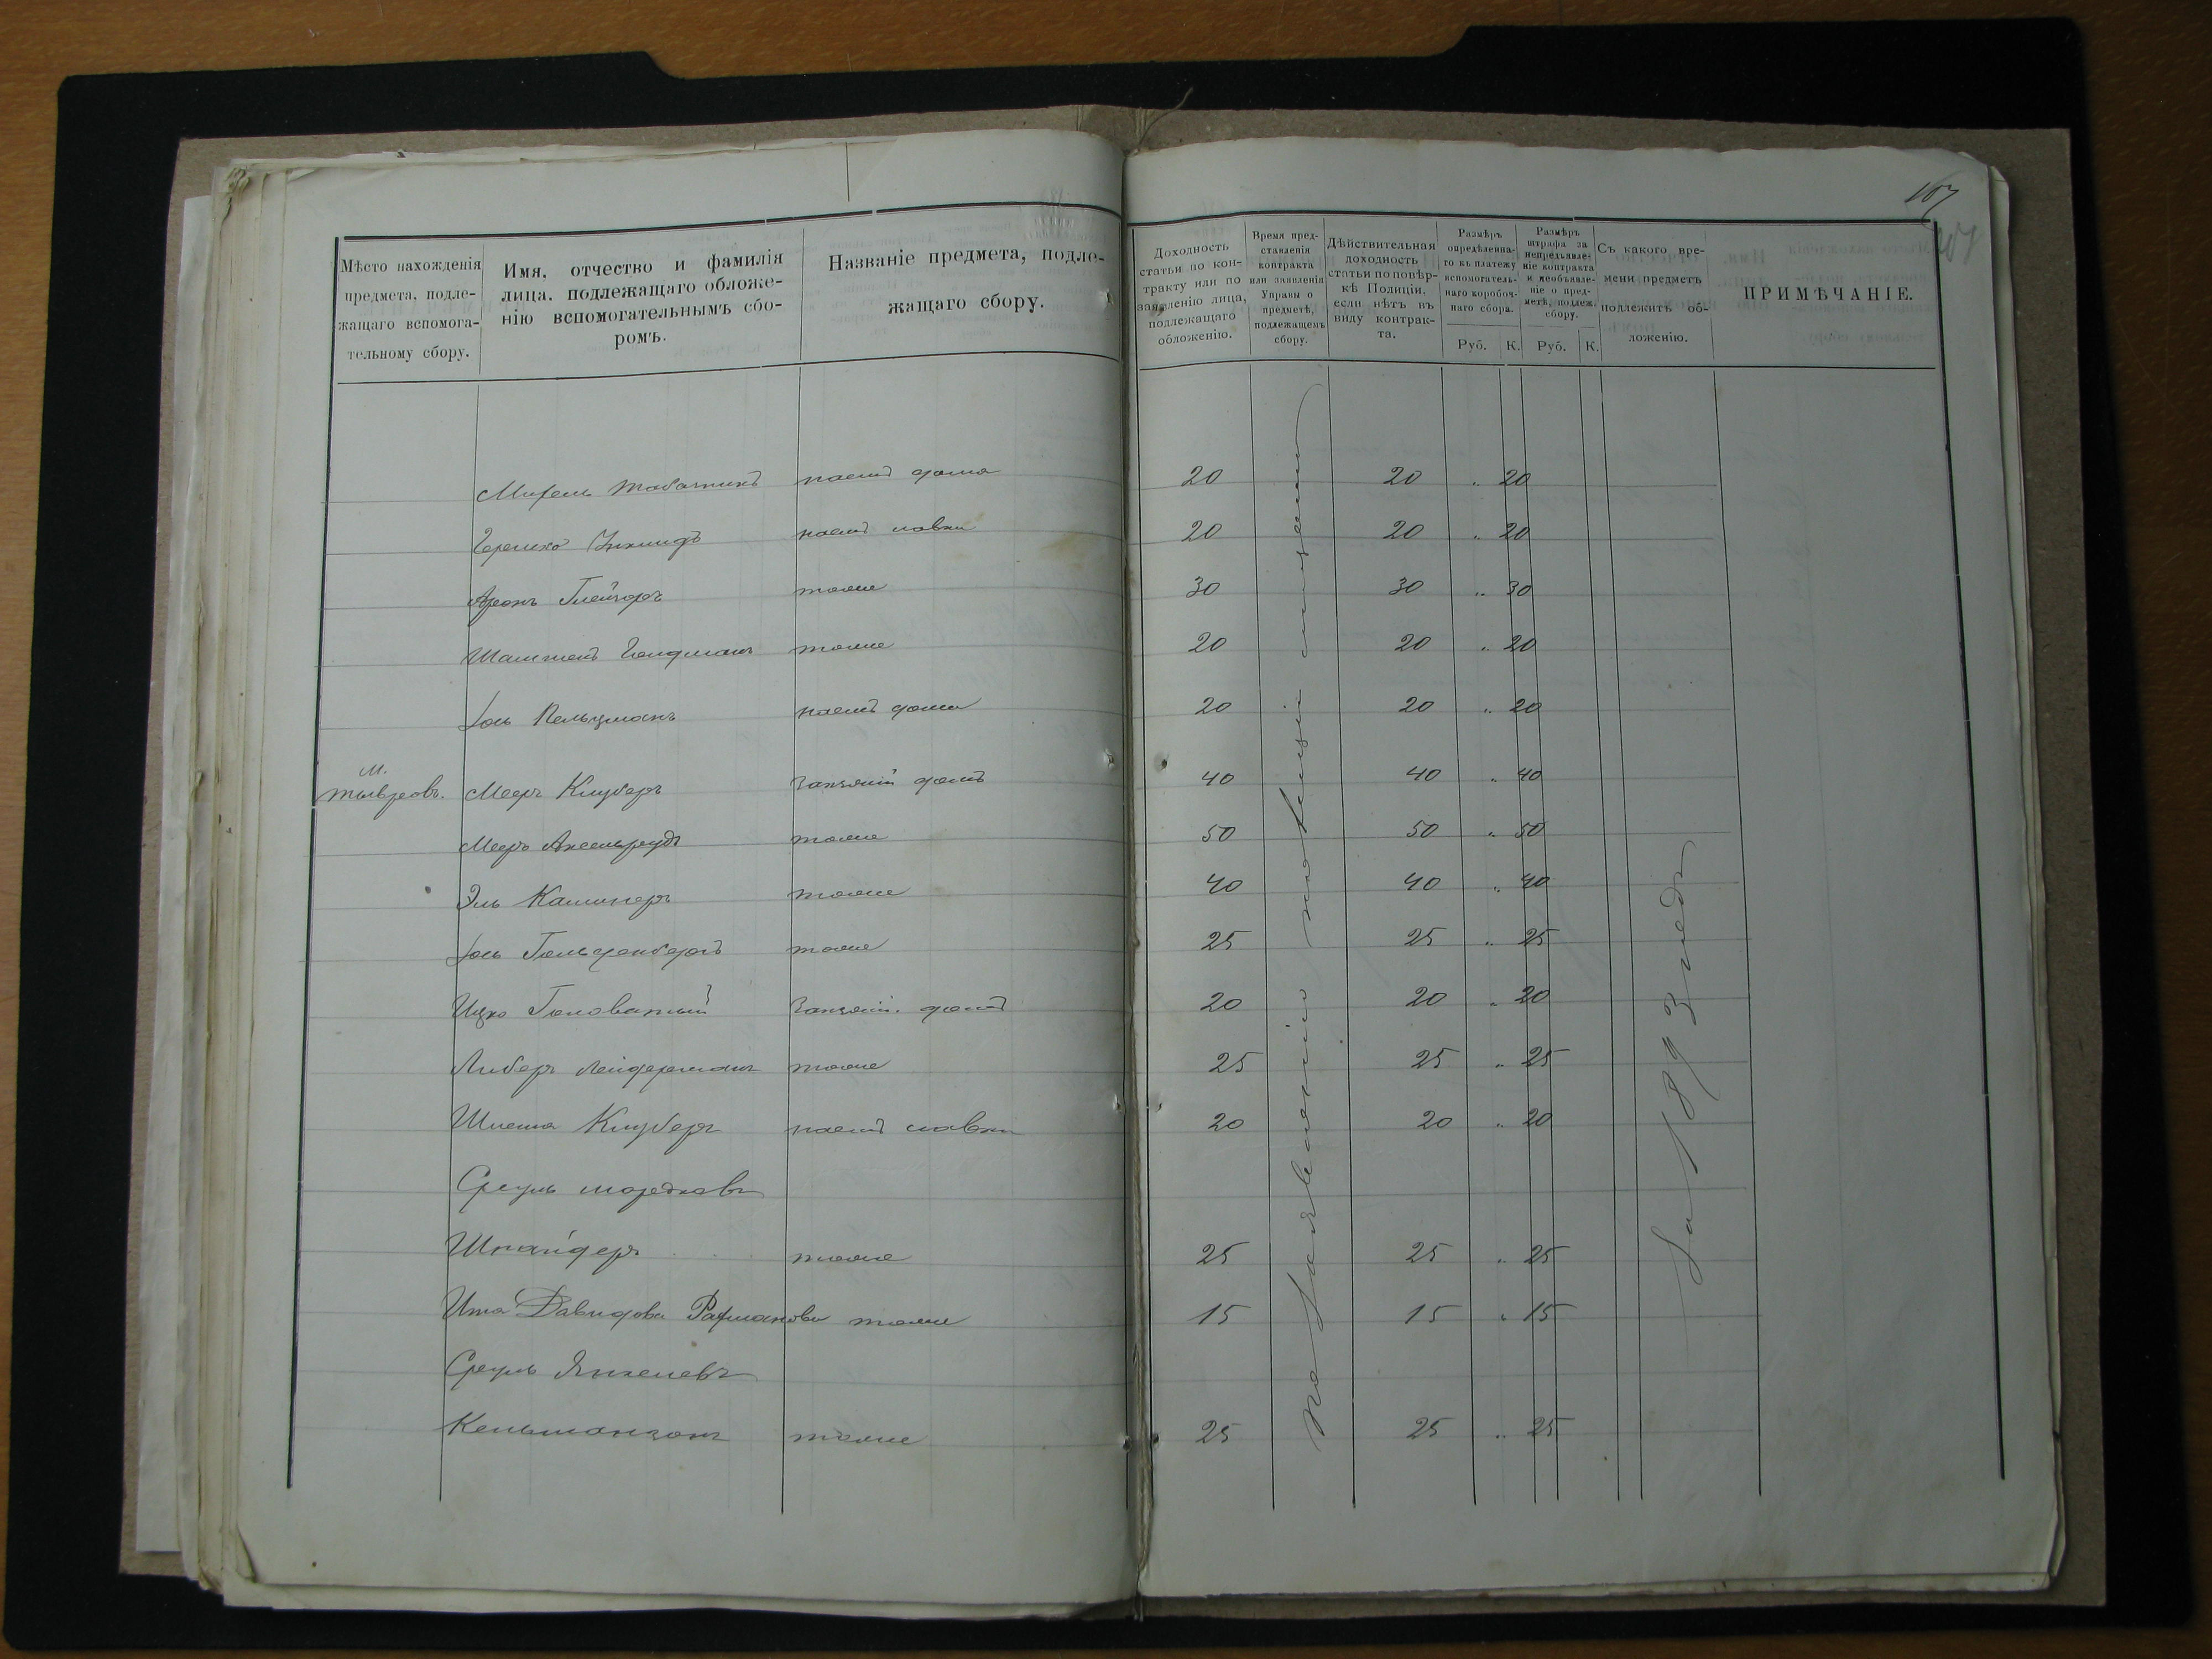 167
Мѣсто нахожденія
предмета, подле-
жащаго вспомога-
тельному сбору.
Имя, отчество и фамилія
лица, подлежащаго обложе-
нію вспомогательнымъ сбо-
ромъ.
Названіе предмета, подле-
жащаго сбору.
Доходность
статьи по кон-
тракту или по
заявленію лица,
подлежащаго
обложенію.
Время пред-
ставленія
контракта
или заявленія
Управы о
предметѣ,
подлежащемъ
сбору.
Дѣйствительная
доходность
статьи по повѣр-
кѣ Полиціи,
если нѣтъ въ
виду контрак-
та.
Размѣръ
опредѣленна-
го къ платежу
вспомогатель-
наго коробоч-
наго сбора.
Руб. К.
Размѣръ
штрафа за
непредъявле-
ніе контракта
и необъявле-
ніе о пред-
метѣ, подлеж.
сбору.
Руб. К.
Съ какого вре-
мени предметъ
подлежитъ об-
ложенію.
ПРИМѢЧАНІЕ.
Табачникъ наемъ дома 20 20 „ 20
Гершко наемъ лавки 20 20 „ 20
Аронъ Глейзеръ тоже 30 30 „ 30
тоже 20 20 „ 20
Іось наемъ дома 20 20 „ 20
м.
Тывровъ. Мееръ Клуберъ Заезжій домъ 40 40 „ 40
Мееръ Аксельрудъ тоже 50 50 „ 50
Эль Каминеръ тоже 40 40 „ 40
Іось Гольденбергъ тоже 25 25 „ 25
Ицко Головатый Заезжій домъ 20 20 „ 20
Либеръ Лейдерманъ тоже 25 25 „ 25
Шлема Клуберъ наемъ лавки 20 20 „ 20
Сруль Мордковъ
Шнайдеръ тоже 25 25 „ 25
Ита Давидова Рахманова тоже 15 15 „ 15
Сруль Янкелевъ
Кельманзонъ тоже 25 25 „ 25
по заявленію полиціи
За 1893 годъ